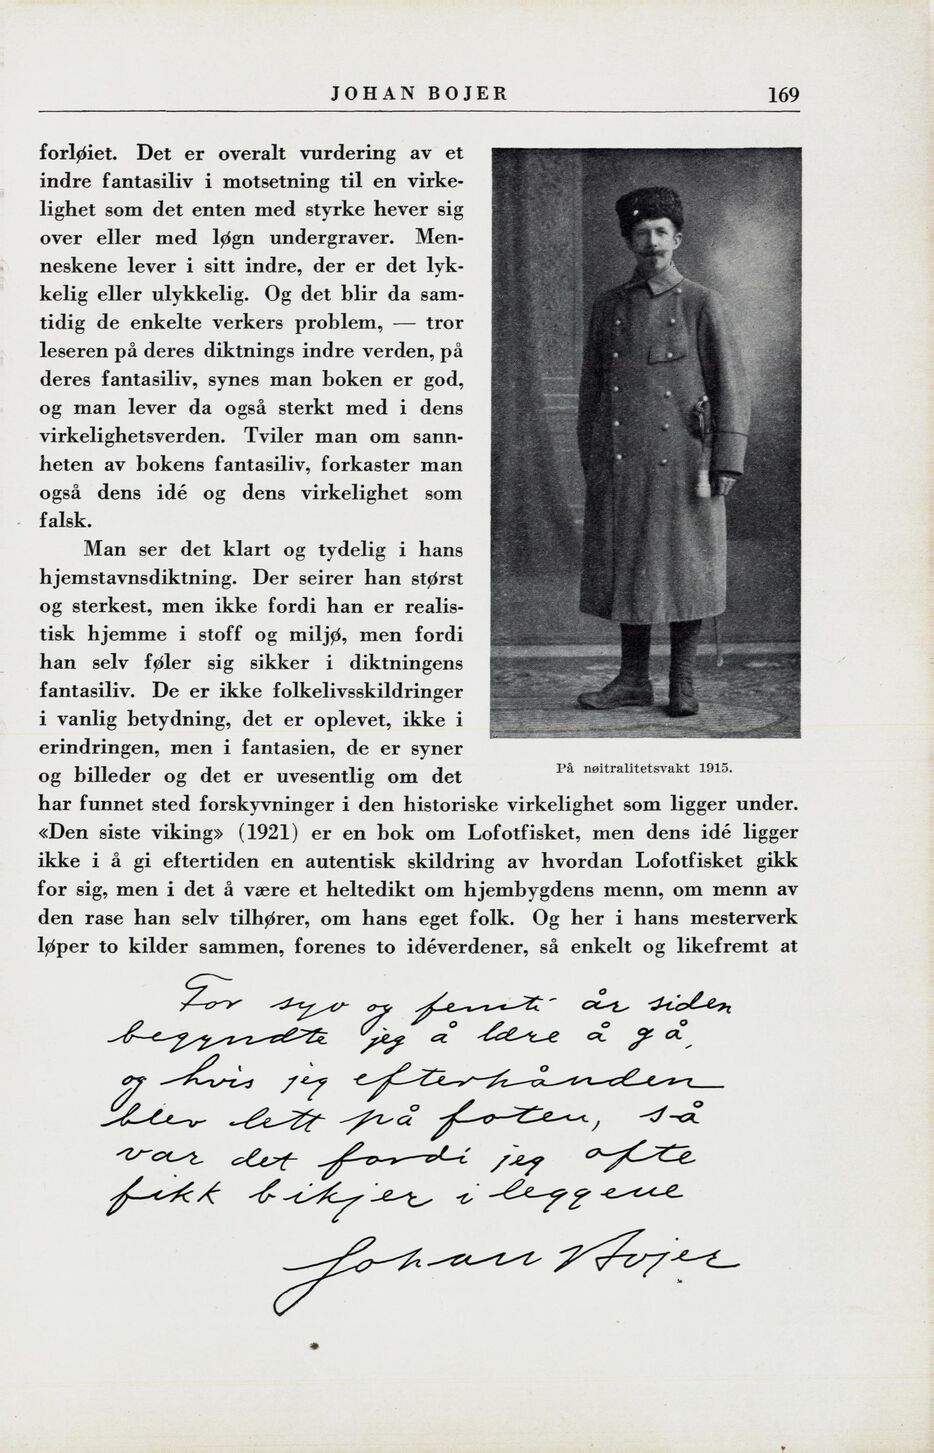 JOHAN BOJER 169
forløiet. Det er overalt vurdering av et
indre fantasiliv i motsetning til en virke-
lighet som det enten med styrke hever sig
over eller med løgn undergraver. Men-
neskene lever i sitt indre, der er det lyk-
kelig eller ulykkelig. Og det blir da sam-
tidig de enkelte verkers problem, — tror
leseren på deres diktnings indre verden, på
deres fantasiliv, synes man boken er god,
og man lever da også sterkt med i dens
virkelighetsverden. Tviler man om sann-
heten av bokens fantasiliv, forkaster man
også dens idé og dens virkelighet som
falsk.
Man ser det klart og tydelig i hans
hjemstavnsdiktning. Der seirer han størst
og sterkest, men ikke fordi han er realis-
tisk hjemme i stoff og miljø, men fordi
han selv føler sig sikker i diktningens
fantasiliv. De er ikke folkelivsskildringer
i vanlig betydning, det er oplevet, ikke i
erindringen, men i fantasien, de er syner
og billeder og det er uvesentlig om det
På nøitralitetsvakt 1915.
har funnet sted forskyvninger i den historiske virkelighet som ligger under.
«Den siste viking» (1921) er en bok om Lofotfisket, men dens idé ligger
ikke i å gi eftertiden en autentisk skildring av hvordan Lofotfisket gikk
for sig, men i det å være et heltedikt om hjembygdens menn, om menn av
den rase han selv tilhører, om hans eget folk. Og her i hans mesterverk
løper to kilder sammen, forenes to idéverdener, så enkelt og likefremt at
For syv og femti år siden
begyndte jeg å lære å gå,
og hvis jeg efterhånden
blev lett på foten, så
var det fordi jeg ofte
fikk bikjer i leggene
Johan Bojer